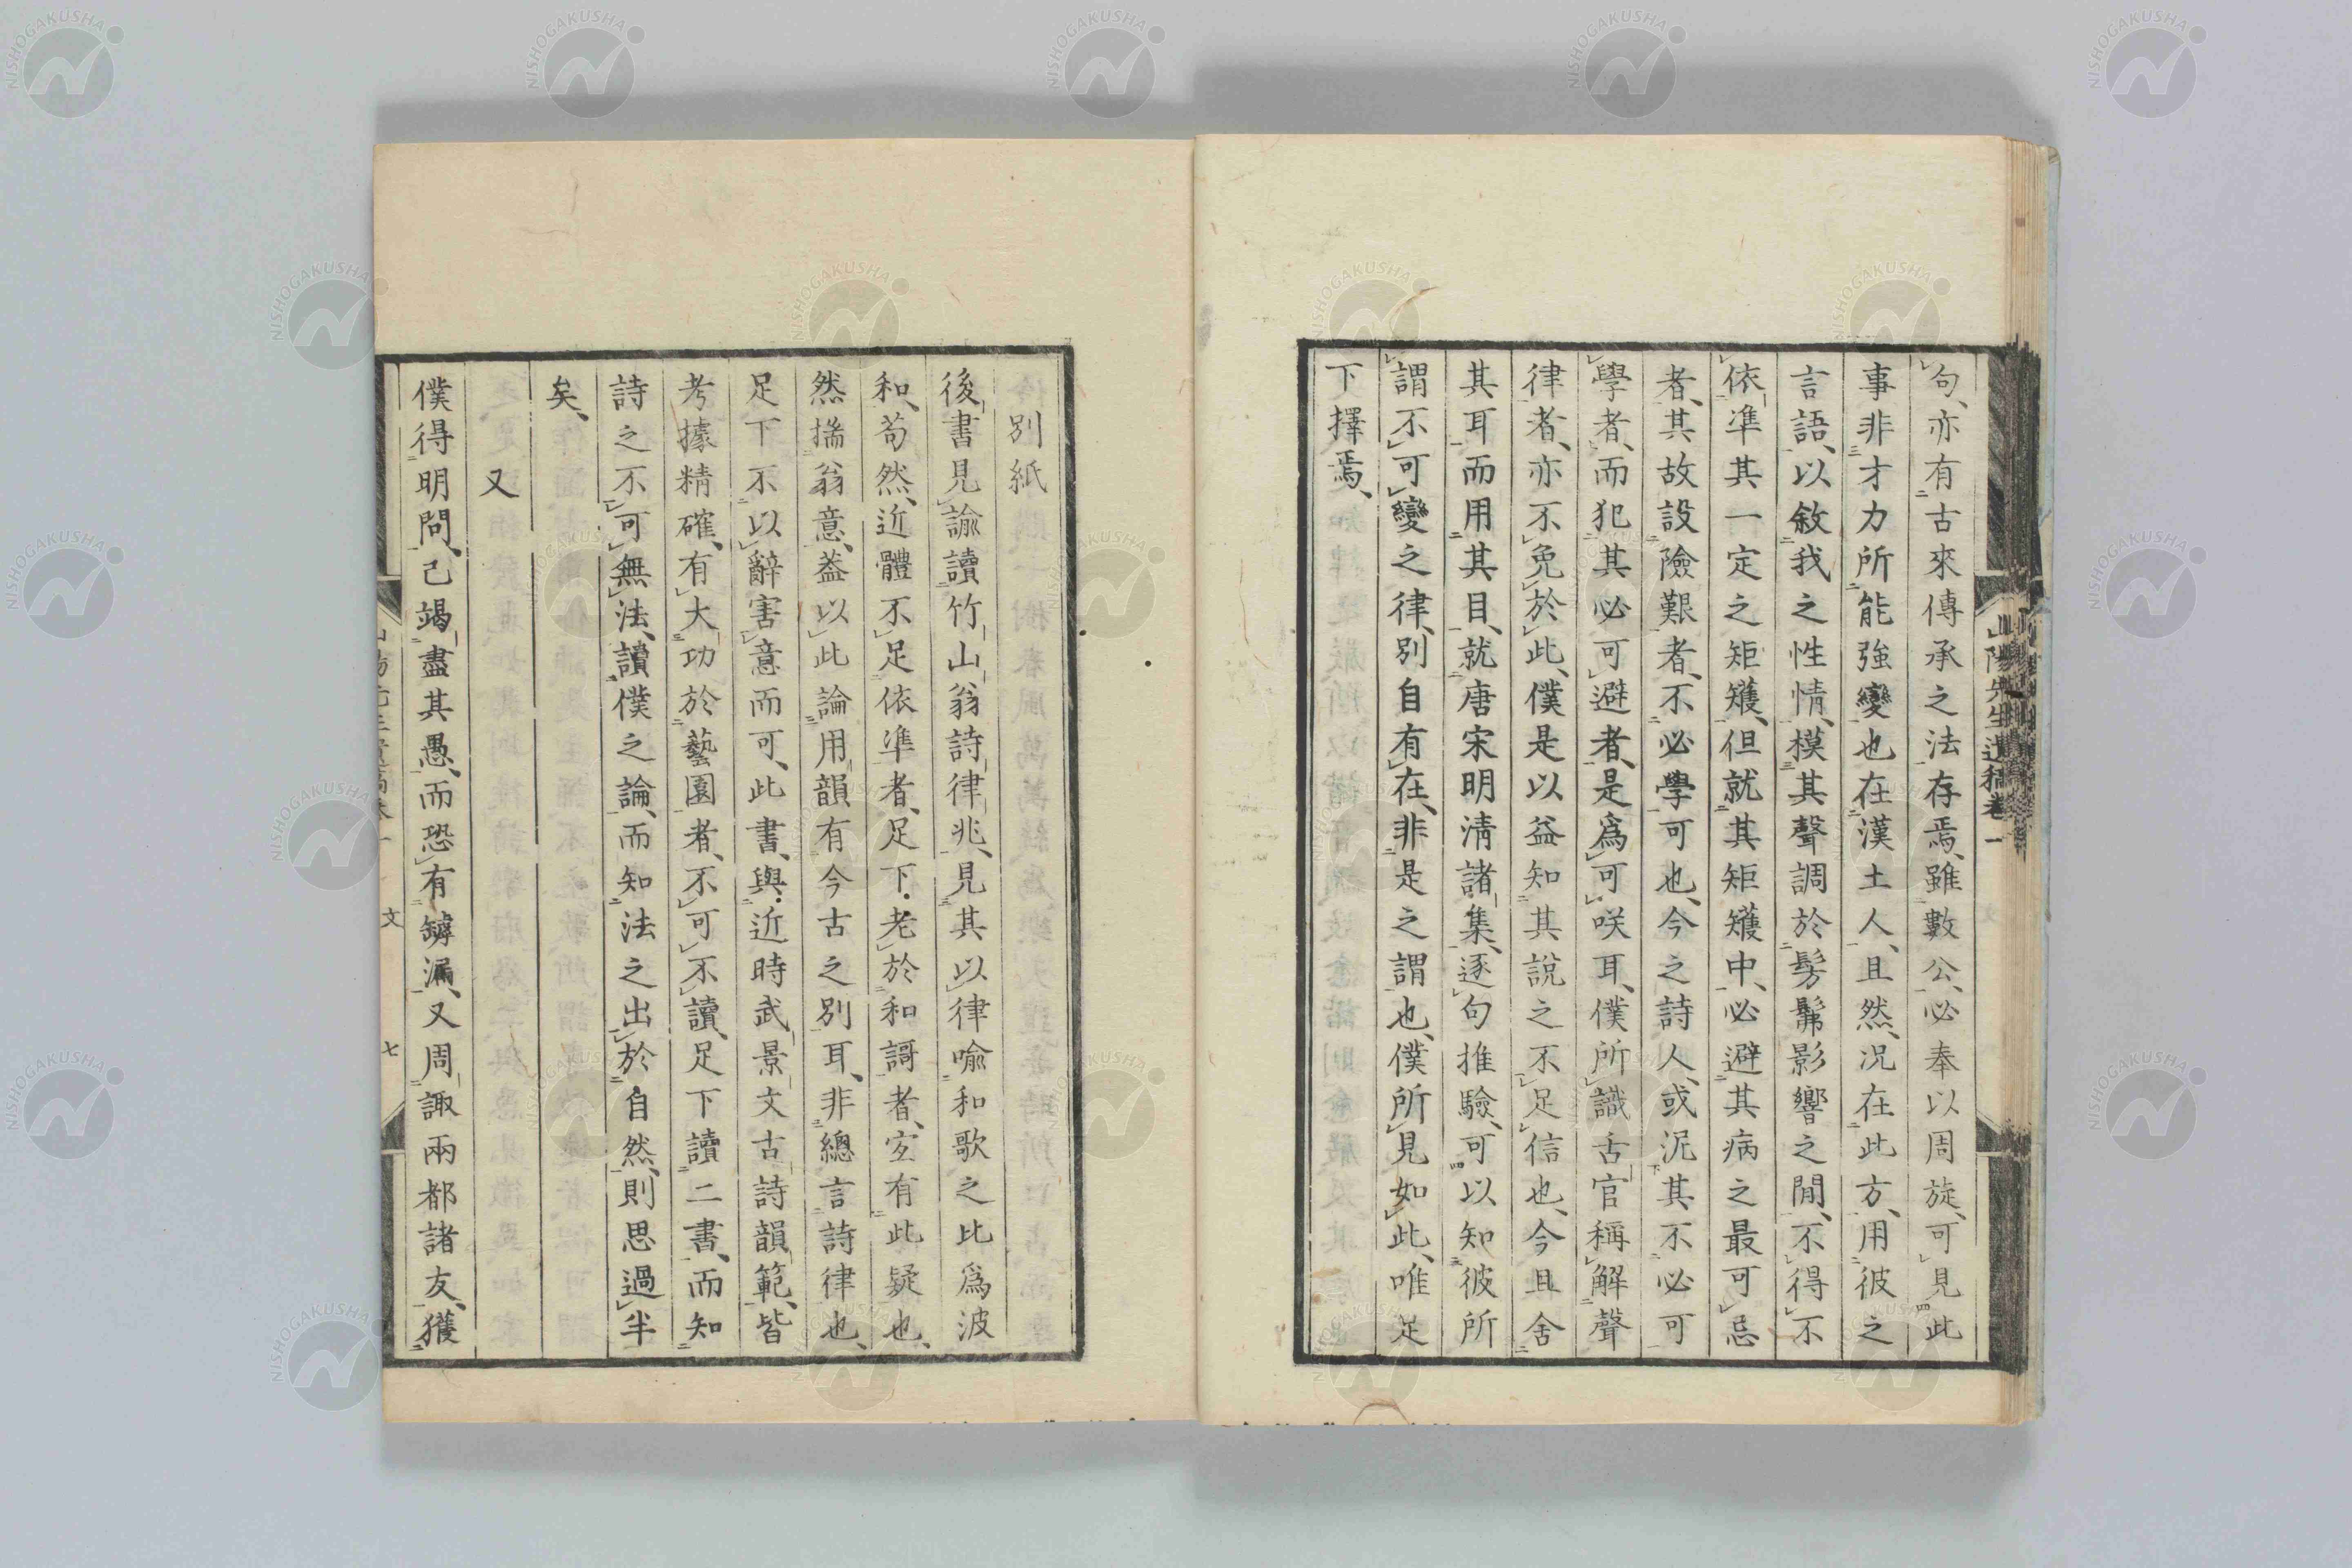 句、亦有古來傳承之法存焉、雖數公、必奉以周旋、可見此
事非才力所能強變也在漢土人、且然、況在此方、用彼之
言語、以敘我之性情、模其聲調於髣髴影響之閒、不得不
依準其一定之矩矱、但就其矩矱中、必避其病之最可忌
者、其故設險艱者、不必學可也、今之詩人、或泥其不必可
學者、而犯其必可避者、是爲可咲耳、僕所識舌官稱解聲
律者、亦不免於此、僕是以益知其說之不足信也、今且舍
其耳而用其目、就唐宋明淸諸集、逐句推驗、可以知彼所
謂不可變之律、別自有在、非是之謂也、僕所見如此、唯足
下擇焉、
山陽先生遺稿卷一
別紙
後書見諭讀竹山翁詩律兆、見其以律喩和歌之比爲波
和、苟然、近體不足依準者、足下老於和謌者、宜有此疑也、
然揣翁意、蓋以此論用韻有今古之別耳、非總言詩律也、
足下不以辭害意而可、此書、與近時武景文古詩韻範、皆
考據精確、有大功於藝園者、不可不讀、足下讀二書、而知
詩之不可無法、讀僕之論、而知法之出於自然、則思過半
矣、
又
僕得明問、己竭盡其愚、而恐有罅漏、又周諏兩都諸友、獲
文
七
NISHOGAKUSHA